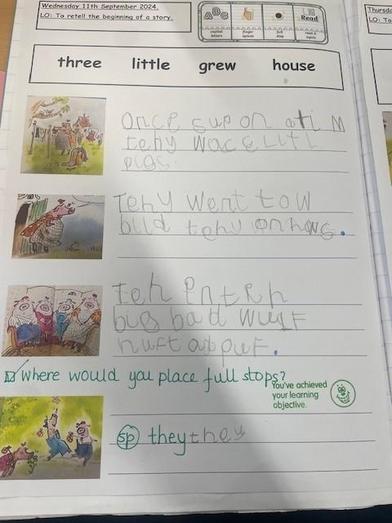 Wednesday 11th September 2024.
LO: To retell the beginning of a story.
capital letters
finger spaces
full stop
Read
Thursd
LO: To
three little grew house
Once supon atI M
tehy wac e LitL
pigs.
Tehy went tow
bild tehy on haws.
Teh enteh
big bad wulf
huft apuf.
Where would you place full stops?
You've achieved
your learning
objective.
sp they they